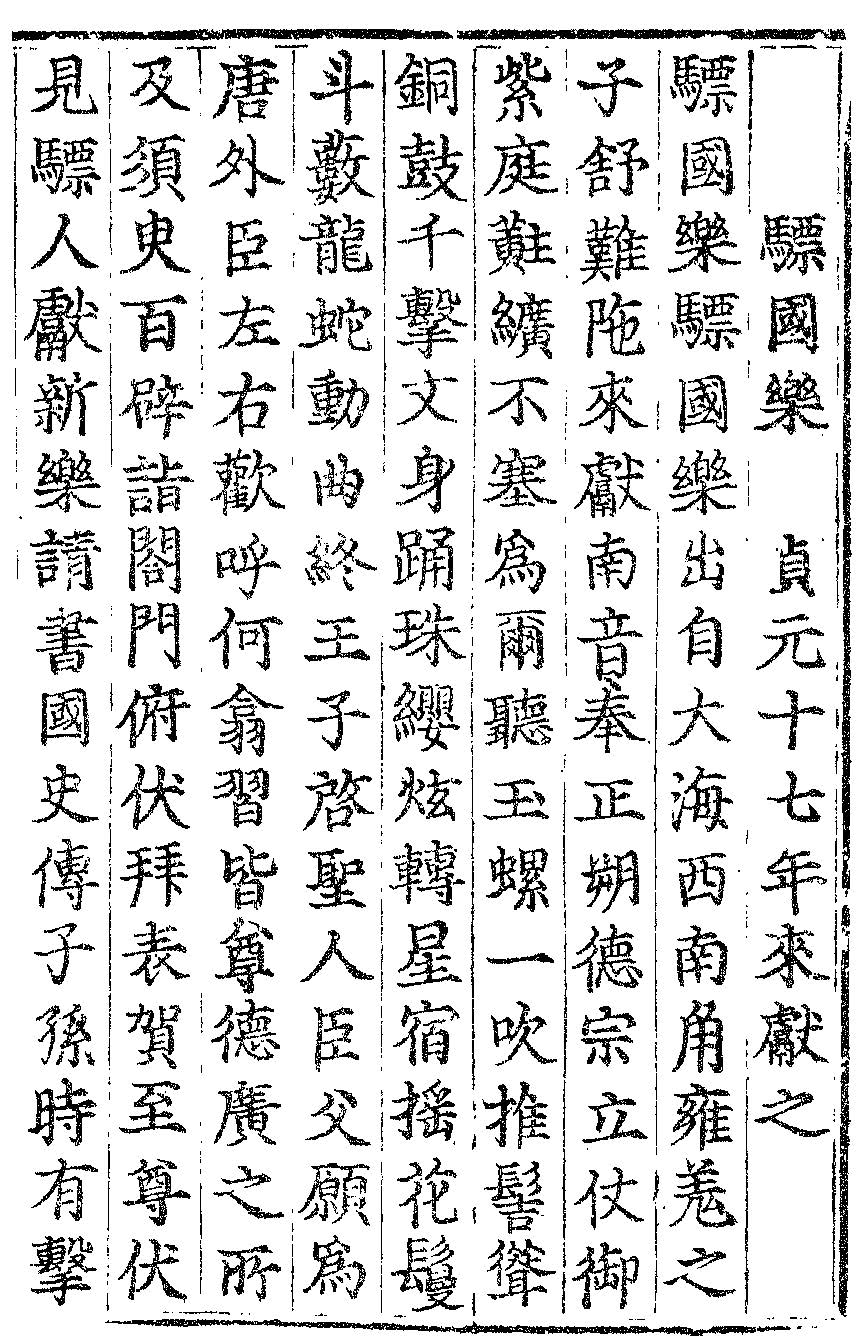 驃國樂　貞元十七年來獻之
驃國樂驃國樂出自大海西南角雍羌之
子舒難陁來獻南音奉正朔德宗立仗御
紫庭黈纊不塞爲爾聽玉螺一吹推髻聳
銅鼓千擊文身踊珠纓炫轉星宿揺花鬘
斗藪龍蛇動曲終王子啓聖人臣父願爲
唐外臣左右歡呼何翕習皆尊德廣之所
及須臾百辟詣閤門俯伏拜表賀至尊伏
見驃人獻新樂請書國史傳子孫時有擊